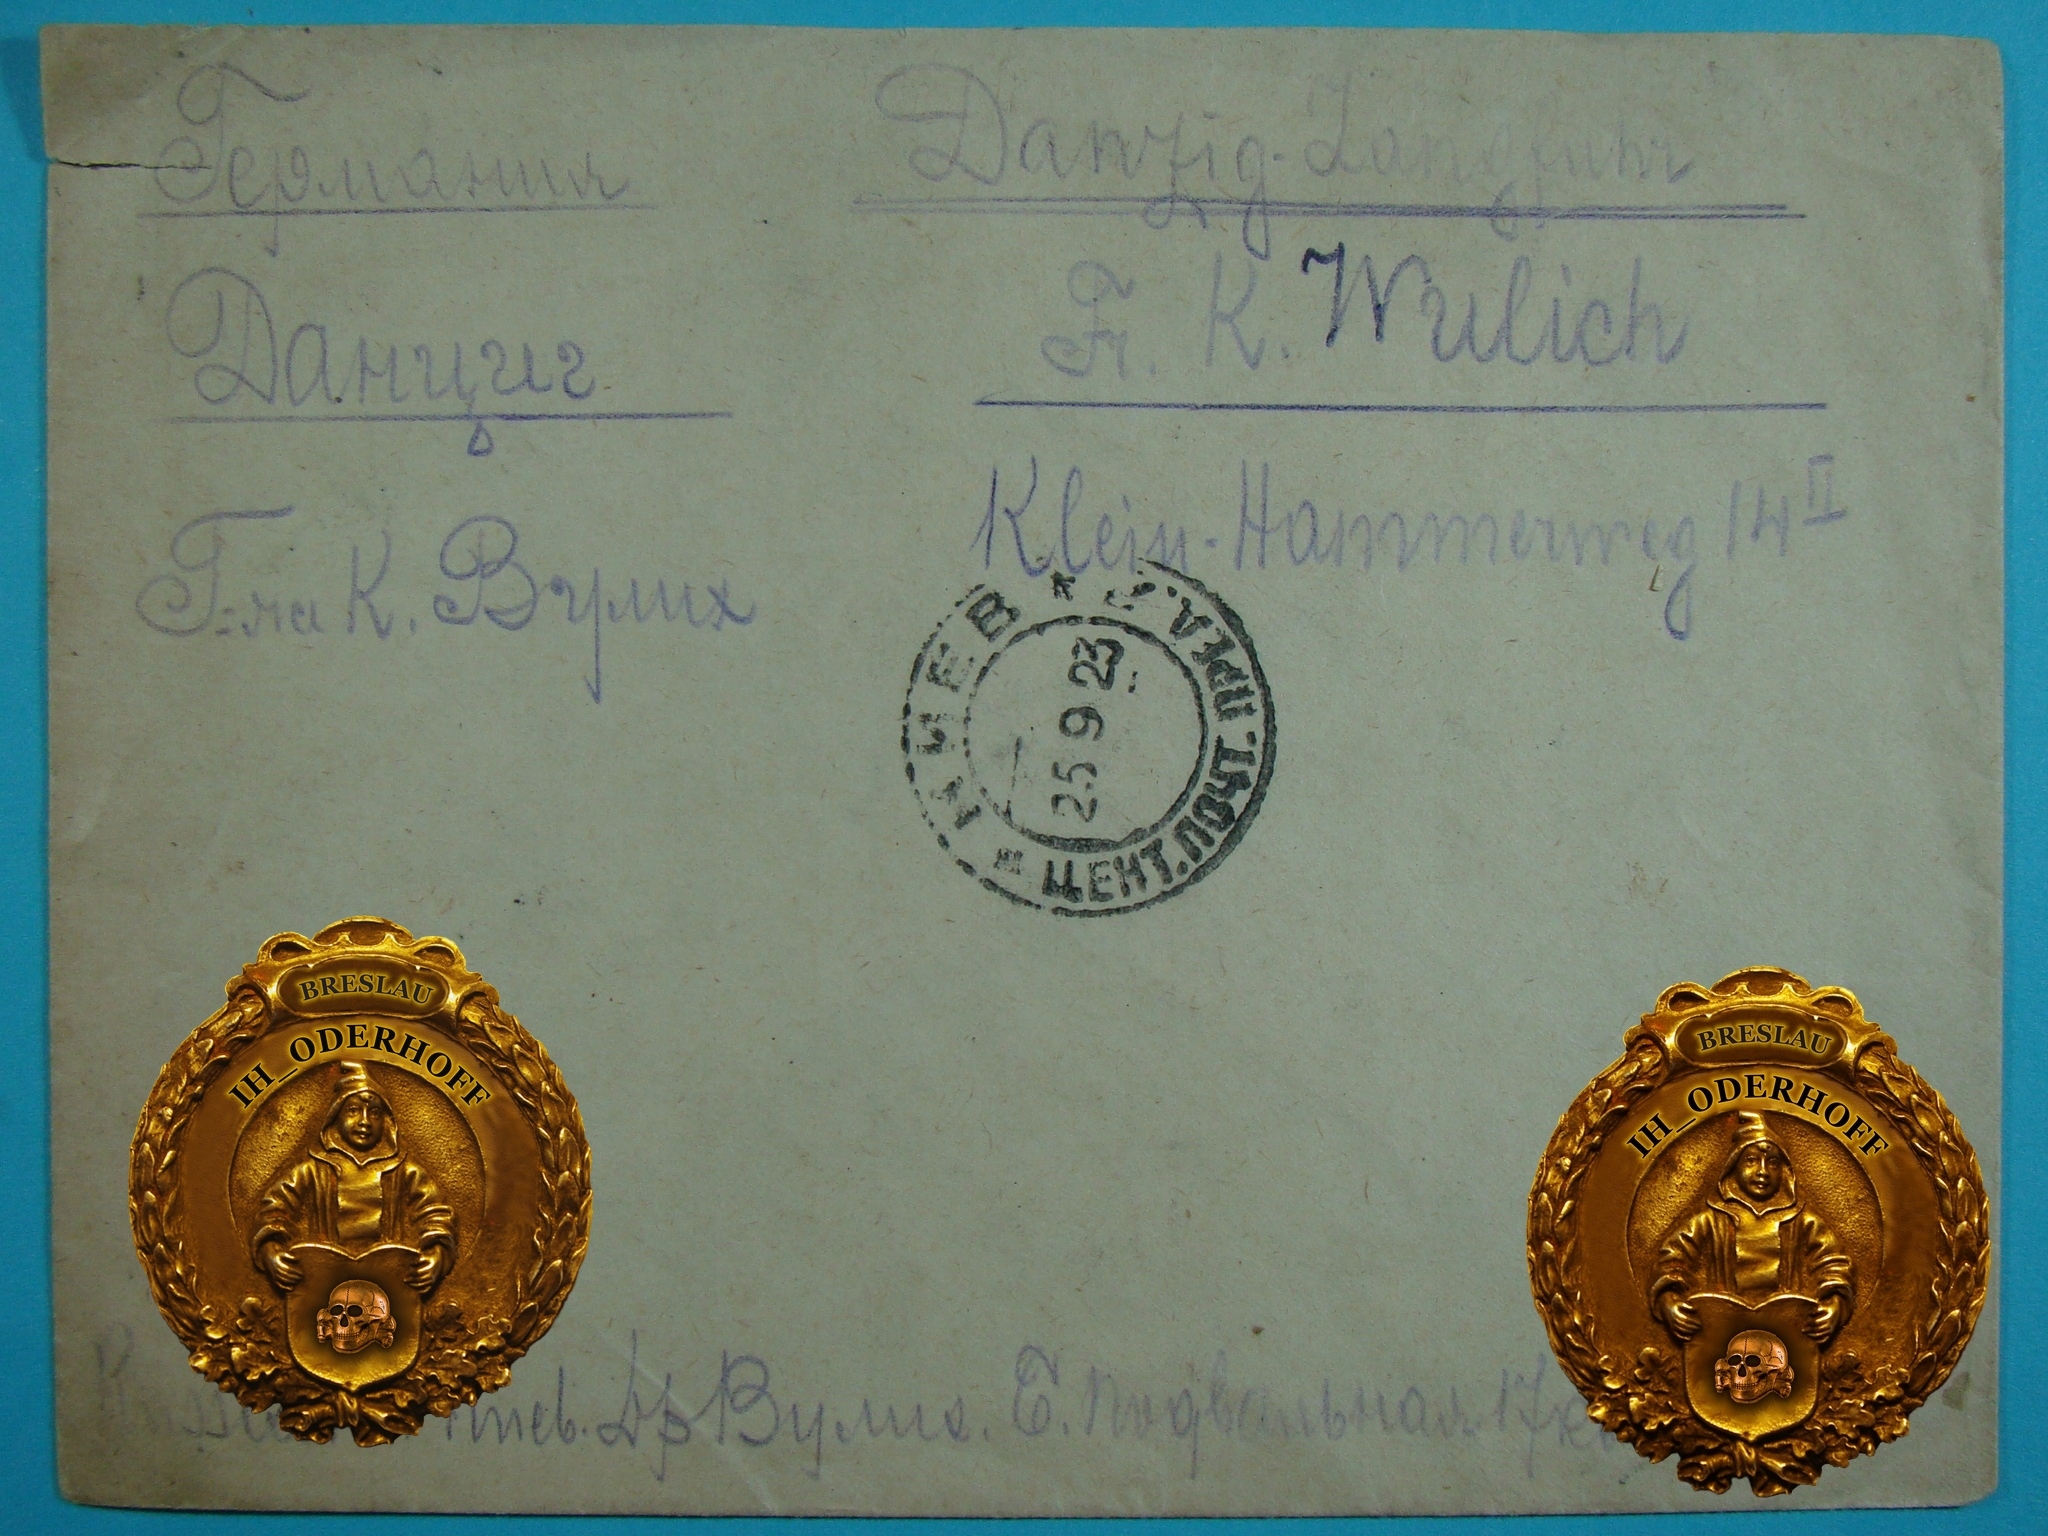 Германия
Данциг
Г-на К. Вулих
Danzig-Langfuhr
Fr. K. Wulich
Klein-Hammerweg 14 II
КИЕВ
ЦЕНТ.ПОЧТ.
25 9 23
BRESLAU
IH_ODERHOFF
BRESLAU
IH_ODERHOFF
Киев. Др Вулих. Б. Подвальная 17